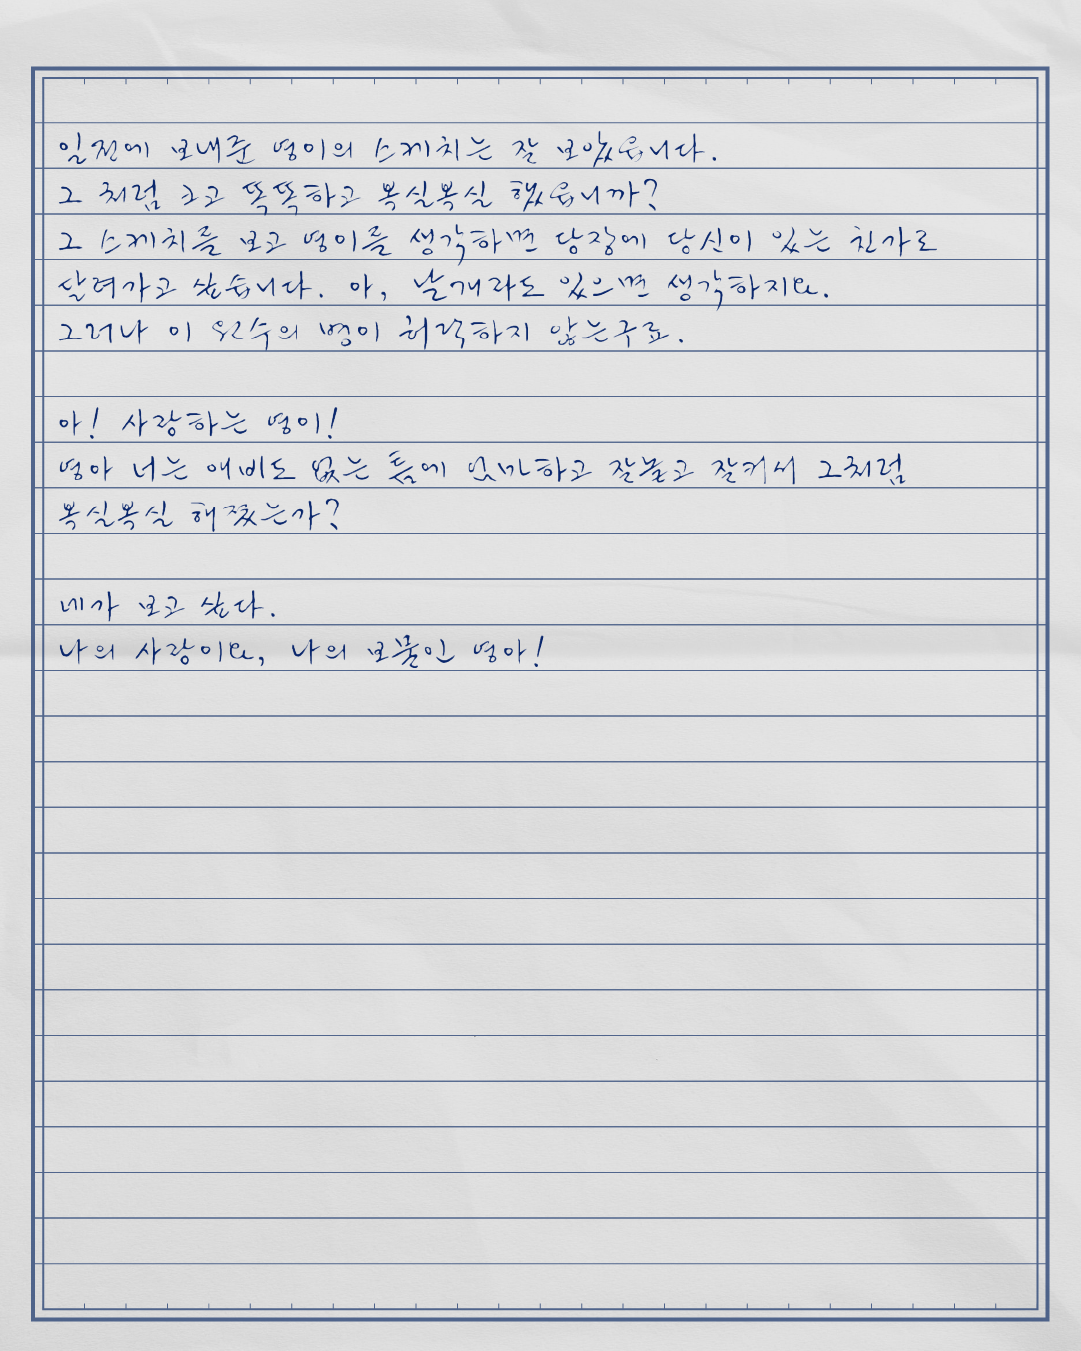 일전에 보내준 영이의 스케치는 잘 보았읍니다.
그 처럼 크고 똑똑하고 복실복실 했읍니까?
그 스케치를 보고 영이를 생각하면 당장에 당신이 있는 친가로
달려가고 싶습니다. 아, 날개라도 있으면 생각하지요.
그러나 이 웬수의 병이 허락하지 않는구료.
아! 사랑하는 영이!
영아 너는 애비도 없는 틈에 엄마하고 잘놀고 잘커서 그처럼
복실복실 해졌는가?
네가 보고 싶다.
나의 사랑이요, 나의 보물인 영아!